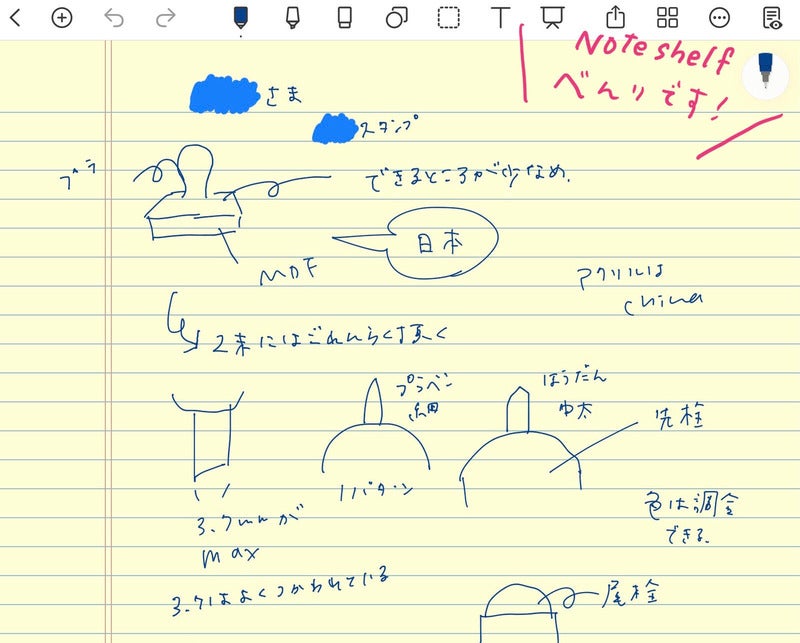 Noteshelf
べんりです!
さま
スタンプ
プラ
できるところが少なめ.
日本
MDF
アクリルは
china
2末にはごれんらく頂く
プラペン
ほうだん
中太
先栓
1パターン
3.7mmが
max
色は調合
できる.
3.7はよくつかわれている
尾栓